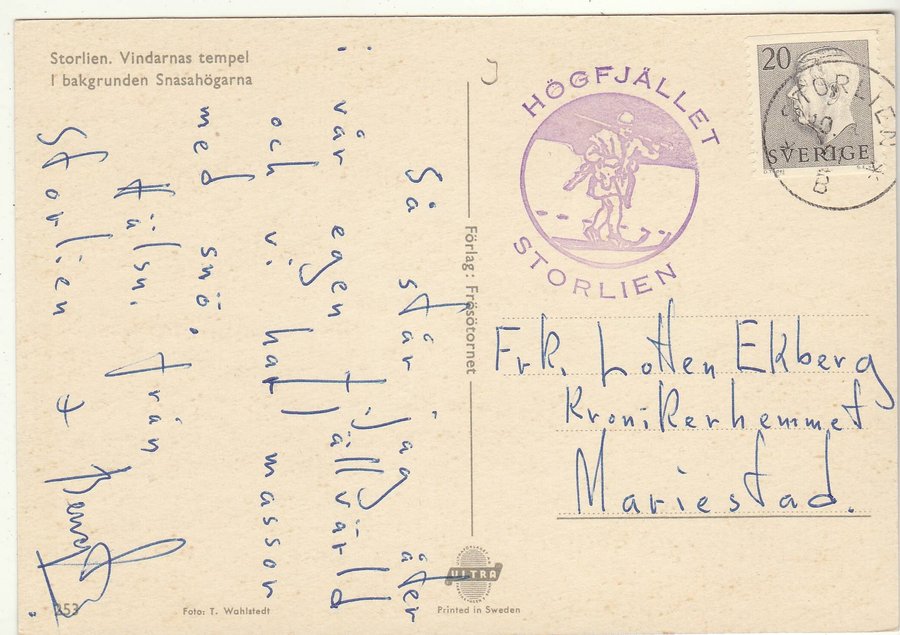 Storlien. Vindarnas tempel
I bakgrunden Snasahögarna
Så står jag åter
i vår egen fjällvärld
och vi har massor
med snö.
Hälsn. från
Storlien +
Förlag: Frösötornet
HÖGFJÄLLET
STORLIEN
20
SVERIGE
STORLIEN
B
Frk. Lotten Ekberg
Kronikerhemmet
Mariestad.
253
Foto: T. Wahlstedt
ULTRA
Printed in Sweden